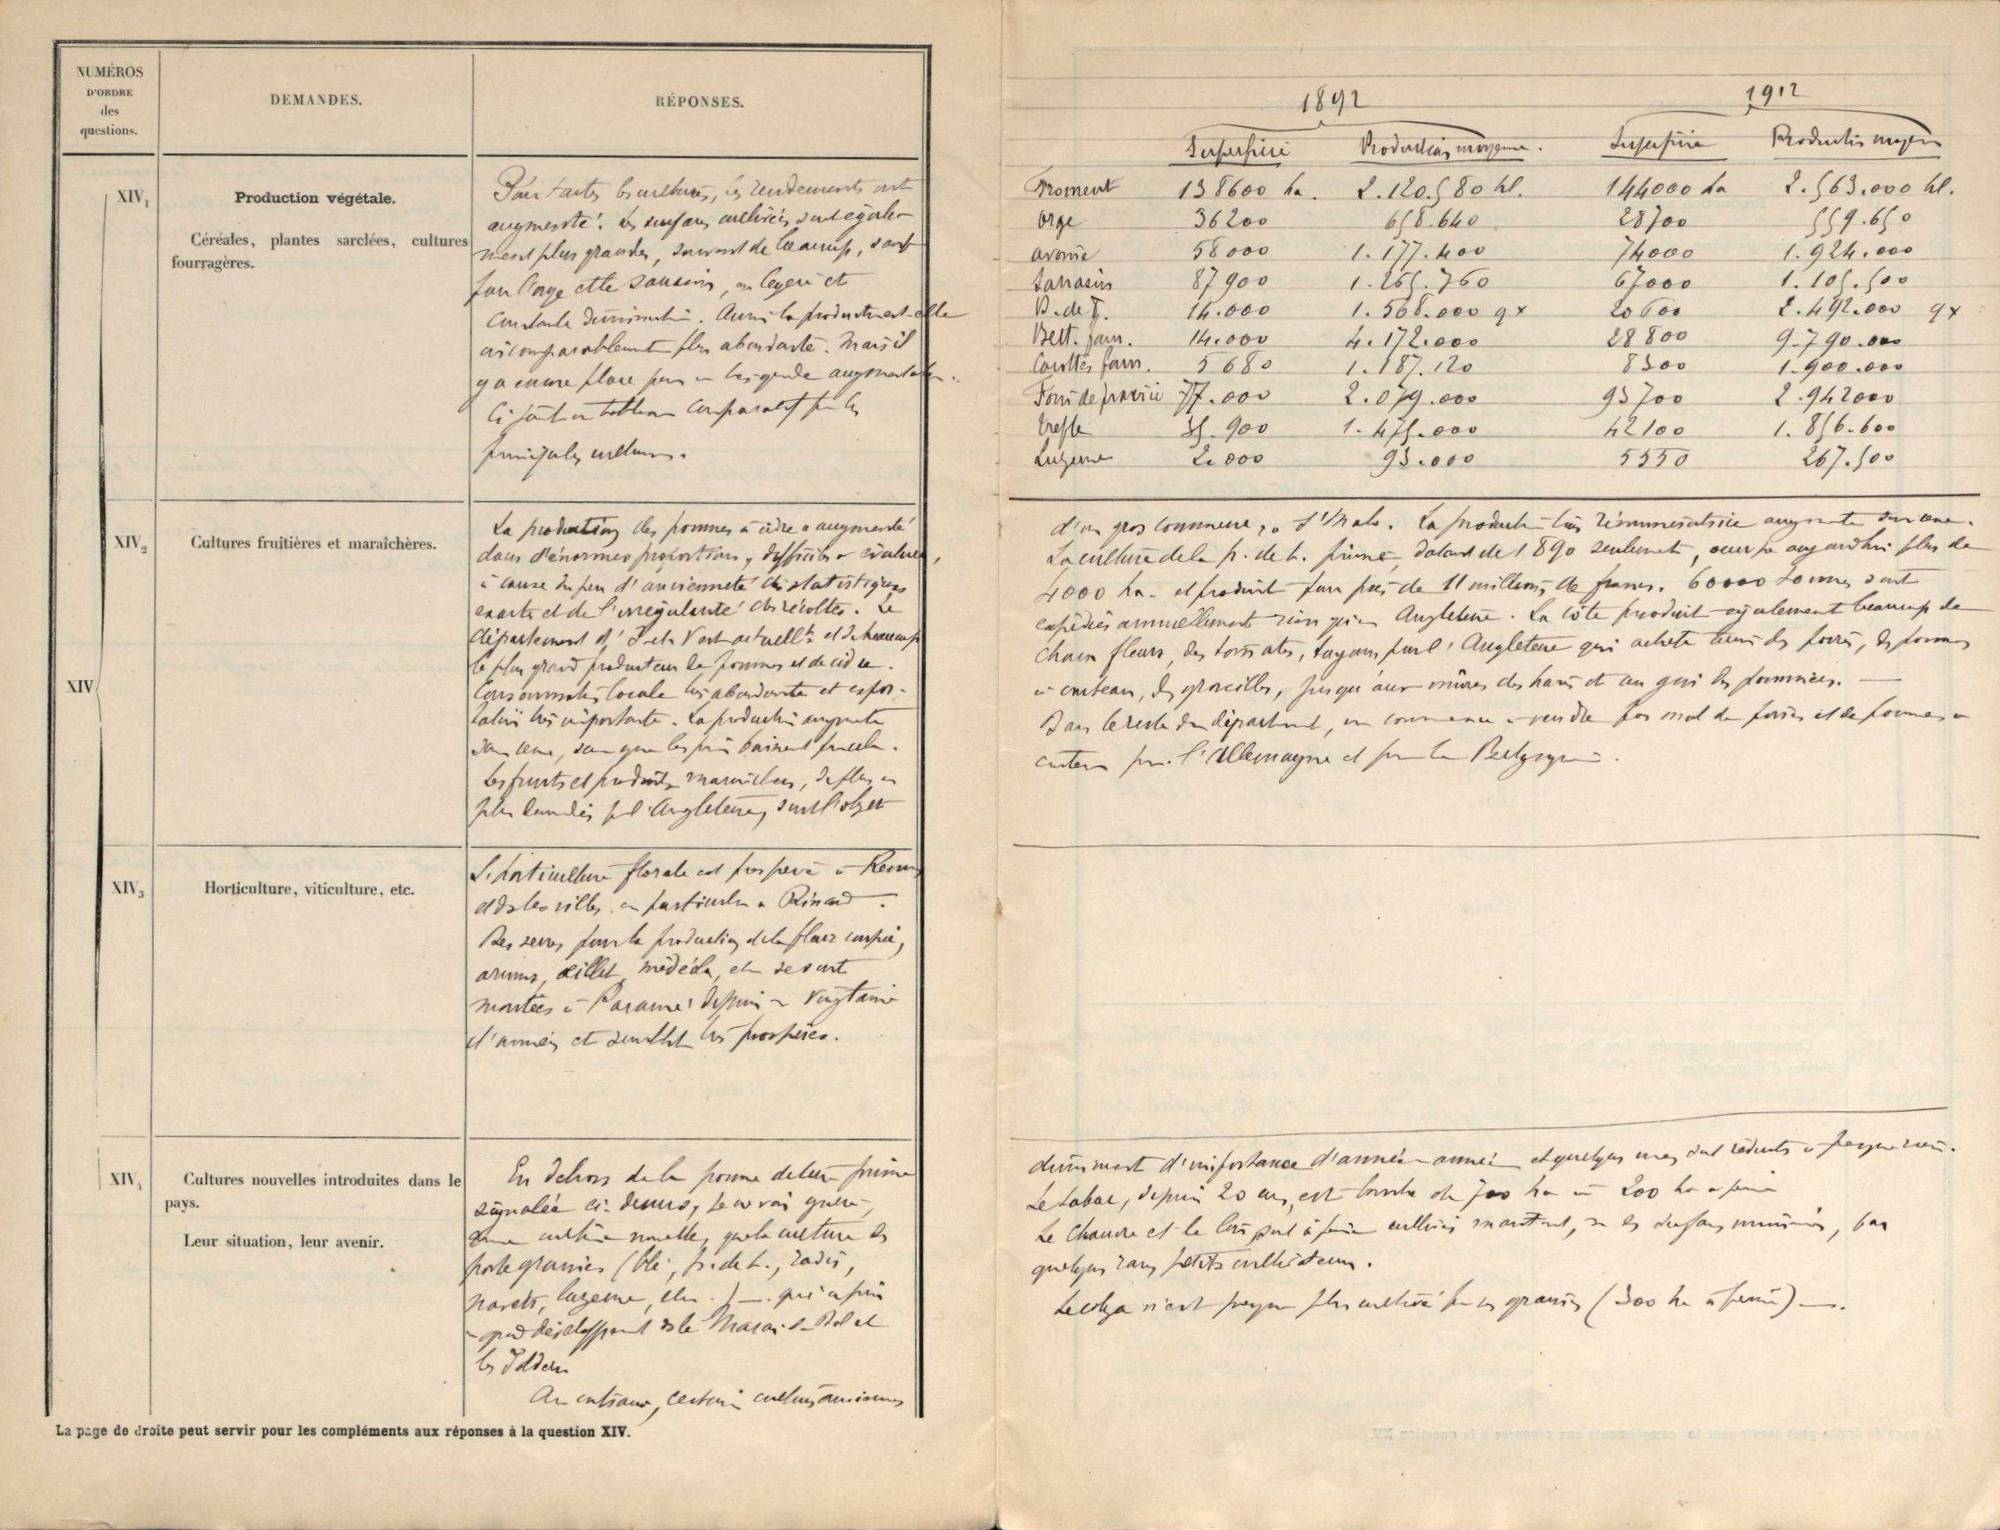 NUMÉROS
D'ORDRE
des
questions.
DEMANDES.
RÉPONSES.
XIV
XIV₁
Production végétale.
Céréales, plantes sarclées, cultures
fourragères.
Pour toutes les cultures, les rendements ont
augmenté. Les surfaces cultivées sont égale-
ment plus grandes, souvent de beaucoup, sauf
pour l'orge et le sarrasin, en légère et
constante diminution. Aussi la production est-elle
incomparablement plus abondante. Mais il
y a encore place pour une très grande augmentation.
Ci joint un tableau comparatif pour les
principales cultures.
XIV₂
Cultures fruitières et maraîchères.
La production des pommes à cidre a augmenté
dans d'énormes proportions, difficiles à évaluer,
à cause du peu d'ancienneté des statistiques
exactes et de l'irrégularité des récoltes. Le
département d'I. et V. est actuellt et de beaucoup
le plus grand producteur de pommes et de cidre.
Consommation locale très abondante et expor-
tation très importante. La production augmente
sans cesse, sans que les prix baissent pour cela.
Les fruits et produits maraîchers, de plus en
plus demandés par l'Angleterre, sont l'objet
XIV₃
Horticulture, viticulture, etc.
L'horticulture florale est prospère à Rennes
et ds les villes, en particulier à Dinard.
Des serres pour la production de la fleur coupée,
arums, œillet, médéola, etc se sont
montées à Paramé depuis une vingtaine
d'années et semblent très prospères.
XIV₄
Cultures nouvelles introduites dans le
pays.
Leur situation, leur avenir.
En dehors de la pomme de terre prime
signalée ci-dessus, je ne vois guère,
comme culture nouvelle, que la culture des
porte graines (blé, p. de t., radis,
navets, luzerne, etc.) — qui a pris
un grand développement ds le Marais de Dol et
les Polders
Au contraire, certaines cultures anciennes
La page de droite peut servir pour les compléments aux réponses à la question XIV.
1892 1912
Superficie Production moyenne. Superficie Production moyenne
Froment 138600 ha. 2.120.580 hl. 144000 ha 2.563.000 hl.
Orge 36200 658.640 28700 559.650
Avoine 58000 1.177.400 74000 1.924.000
Sarrasin 87900 1.265.760 67000 1.105.500
P. de T. 14.000 1.568.000 qx 20600 2.492.000 qx
Bett. four. 14.000 4.172.000 28800 9.790.000
Carottes four. 5680 1.187.120 8300 1.900.000
Foin de prairie 77.000 2.079.000 93700 2.942000
Trèfle 35.900 1.475.000 42100 1.856.600
Luzerne 2.000 93.000 5550 267.500
d'un gros commerce, à St Malo. La production très rémunératrice augmente sans cesse.
La culture de la p. de t. prime, datant de 1890 seulement, occupe aujourdhui plus de
4000 ha. et produit pour près de 11 millions de francs. 60000 tonnes sont
expédiées annuellement rien qu'en Angleterre. La côte produit également beaucoup de
choux fleurs, des tomates, toujours pour l'Angleterre qui achète aussi des poires, des pommes
à couteau, des groseilles, jusqu'aux mûres des haies et au gui des pommiers. —
Dans le reste du département, on commence à vendre pas mal de poires et de pommes à
couteau pour l'Allemagne et pour la Belgique.
diminuent d'importance d'année en année et quelques unes sont réduites à presque rien.
Le tabac, depuis 20 ans, est tombé de 700 ha à 200 ha à peine
Le Chanvre et le lin sont à peine cultivés maintenant, sur des surfaces minimes, par
quelques rares petits cultivateurs.
Le colza n'est presque plus cultivé pour ses graines (300 ha à peine) —.